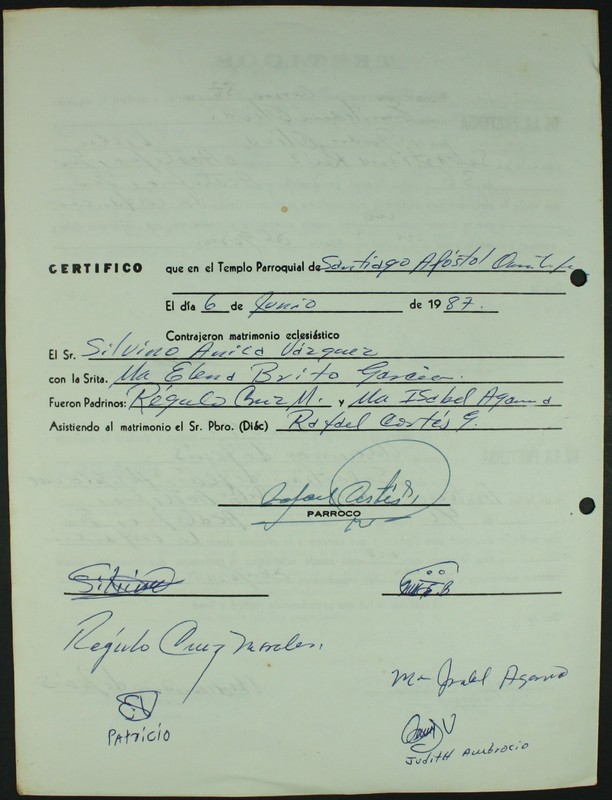 CERTIFICO que en el Templo Parroquial de Santiago Apóstol
El día 6 de Junio de 1987.
Contrajeron matrimonio eclesiástico
El Sr. Silvino Anica Vázquez
con la Srita. Ma Elena Brito García.
Fueron Padrinos: Régulo Cruz M. y Ma Isabel Agama
Asistiendo al matrimonio el Sr. Pbro. (Diác) Rafael Cortés G.
Rafael Cortés
PARROCO
Silvino
Régulo Cruz Morales.
Ma Isabel Agama
PATRICIO
JUDITH AMBROCIO